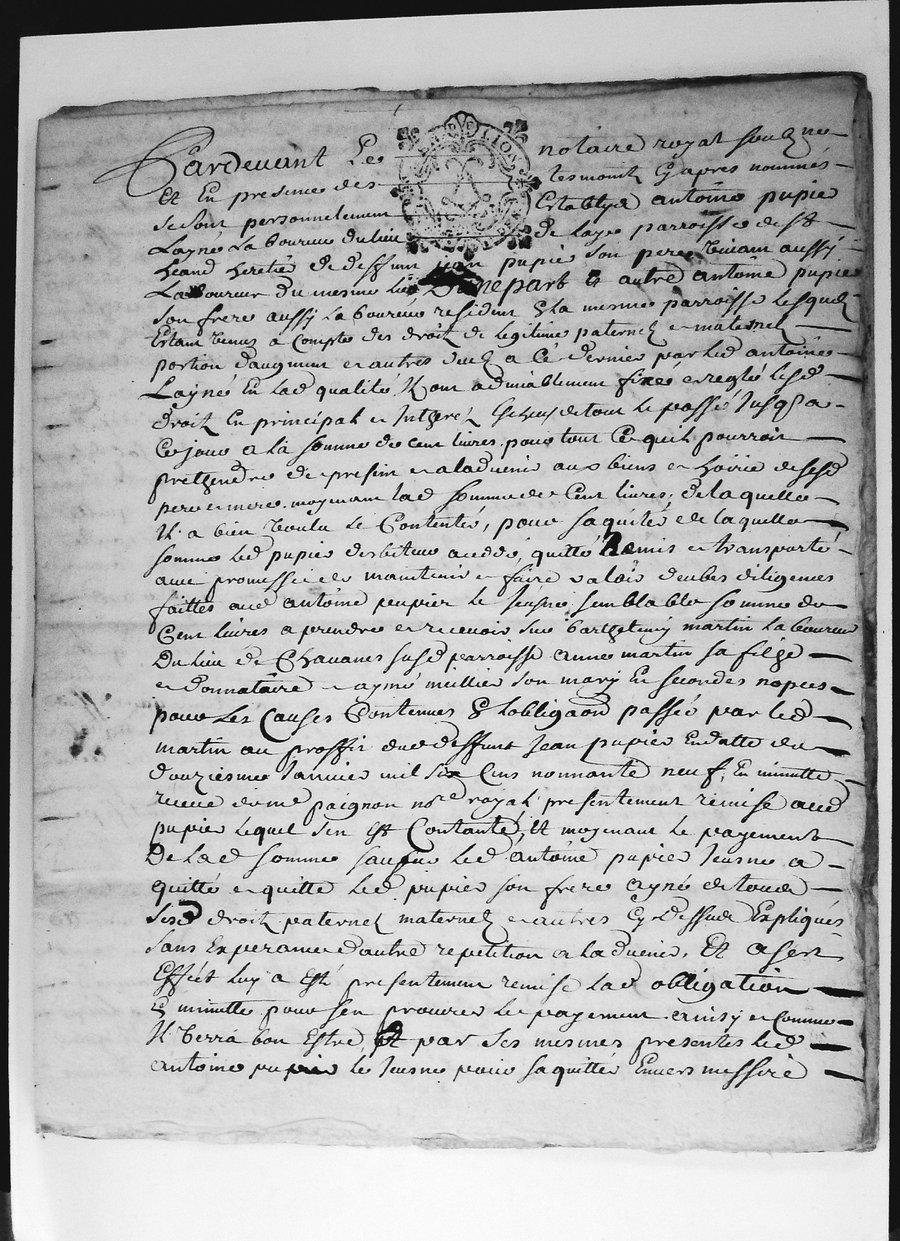 Pardevant Le notaire royal soubzne
Et En presence des tesmoins Cy apres nommés
se sont personnelement Establys antoine pupier
Layné La boureur du lieu de Laye parroisse de St
heand heretié de deffunt jean pupier son pere vivant aussy
La boureur du mesme lieu Dune part & autre antoine pupier
son frere aussy la boureur resident & la mesme parroisse lesquelz
Estant venus a compte des droit de Legitime paternel e maternel
portion daugment e autres deubz a Ce dernier par led antoine
Layné En lad qualité, Il ont admiablement fixée e reglé lesd
droit En principal e Interé, de tout le passé Jusqs a
Ce jour a la somme de cent livres pour tout Ce quil pourroit
prethendre de present e aladvenir aux biens e hoirie de sesd
pere e mere, moyenant lad somme de Cent livres, de laquelle
Il a bien voulu Le Contenter, pour saquiter de laquelle
somme led pupier debiteur a cedé, quitté Remis e transporté
avec promesse de maintenir e faire valoir deubes diligences
faittes aud antoine pupier le Jeusne semblable somme de
Cent livres a prendre e recevoir sur barthelemy martin la boureur
Du lieu de Chavanes susd parroisse anne martin sa fillje
e donnataire e aymé meillier son mary En secondes nopces
pour Les Causes Contenues & lobligaon passée par led
martin au proffit dud deffunt Jean pupier En datte du
douziesme Janvier mil six Cens nonnante neuf, En minutte
receue dud me paignon nore royal presentement remise aud
pupier lequel sen est Contanté, Et moyenant le payement
De lad somme led antoine pupier Jeusne a
quitté e quitte led pupier son frere ayné de tous
ses droit paternel maternel e autres Cy Dessus Expliqués
sans Esperance dautre repetition a ladvenir, Et a set
Effét luy a Esté presentement remise lad obligation
& minutte pour sen procurer le payement ainsy e Comme
Il verra bon Estre, Et par ses mesmes presentes led
antoine pupier le Jeusne pour saquitter Envers messire